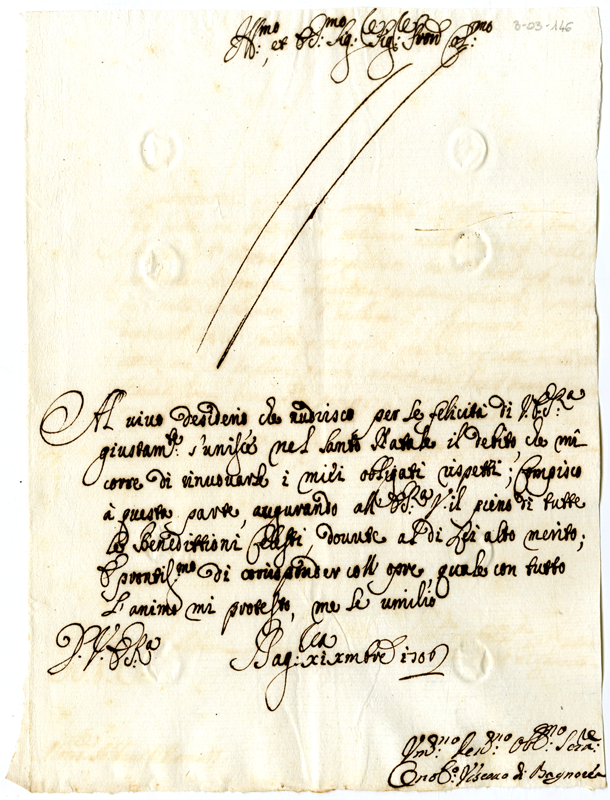 Ill:mo, et Ecc:mo Sig: Sig: Pron Col:mo
3-03-146
Al vivo desiderio che nudrisco per le felicità di V. Ecc:a
giustam:te s'unisce nel santo Natale il debito, che mi
corre di rinuovarle i miei obligati rispetti; Compisco
à questa parte, augurando all' Ecc:a V. il pieno di tutte
le Benedittioni Celesti, dovute al di Lei alto merito;
E prontiss:mo di corrisponder coll' opre, quale con tutto
L'animo mi protesto, me le umilio
D. V. Ecc:a
Bag:ca xi xmbre 1706
Um:mo Rev:mo Obl:mo
Vescovo di Bagnorea